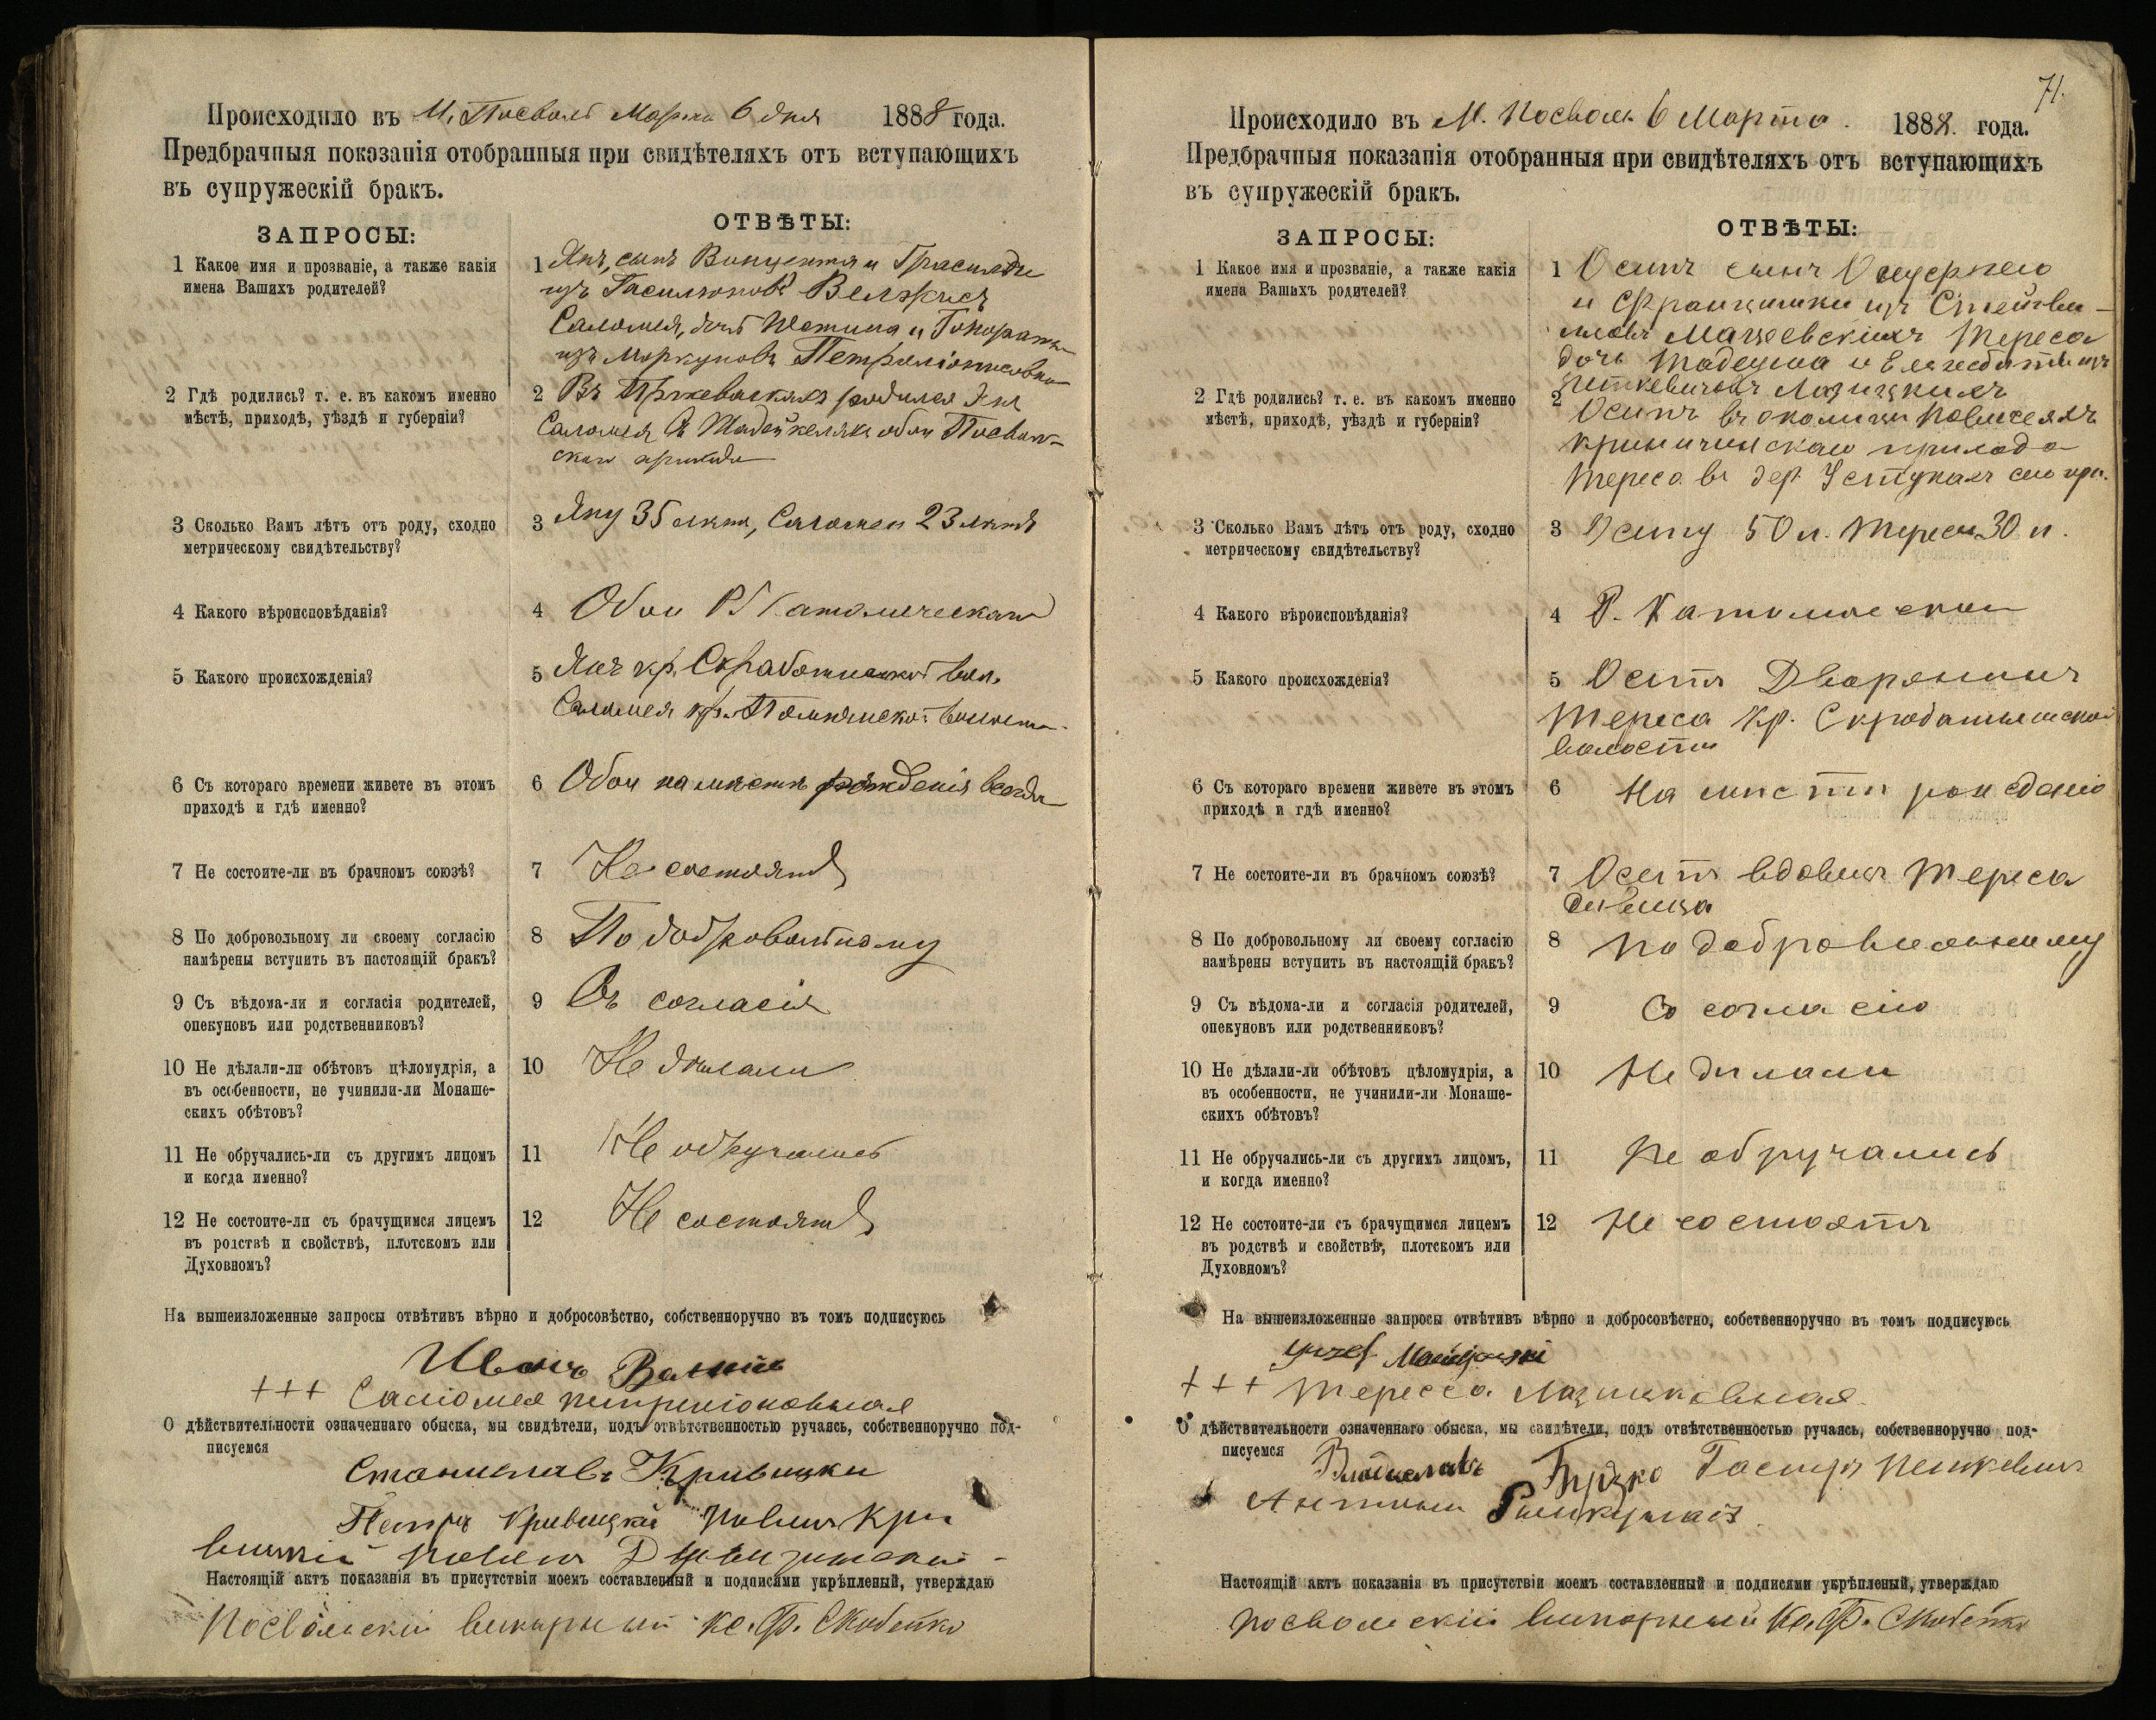 Происходило въ М. Посволь Марта 6 дня 1888 года.
Предбрачныя показанія отобранныя при свидѣтеляхъ отъ вступающихъ
въ супружескій бракъ.
ЗАПРОСЫ:
ОТВѢТЫ:
1 Какое имя и прозваніе, а также какія
имена Вашихъ родителей?
1 Янъ, сынъ Винцентія и
изъ
Саломея, дочь и Гонораты
изъ Моркуновъ
2 Гдѣ родились? т. е. въ какомъ именно
мѣстѣ, приходѣ, уѣздѣ и губерніи?
2 Въ родился Янъ
Саломея въ обои Посволь-
скаго прихода
3 Сколько Вамъ лѣтъ отъ роду, сходно
метрическому свидѣтельству?
3 Яну 35 лѣтъ, Саломеи 23 лѣтъ
4 Какого вѣроисповѣданія?
4 Обои Р Католическаго
5 Какого происхожденія?
5 Янъ кр. вол.
Саломея кр.
6 Съ котораго времени живете въ этомъ
приходѣ и гдѣ именно?
6 Обои на мѣстѣ рожденія всегда
7 Не состоите-ли въ брачномъ союзѣ?
7 Не состоятъ
8 По добровольному ли своему согласію
намѣрены вступить въ настоящій бракъ?
8 По добровольному
9 Съ вѣдома-ли и согласія родителей,
опекуновъ или родственниковъ?
9 Съ согласія
10 Не дѣлали-ли обѣтовъ цѣломудрія, а
въ особенности, не учинили-ли Монаше-
скихъ обѣтовъ?
10 Не дѣлали
11 Не обручались-ли съ другимъ лицомъ
и когда именно?
11 Не обручались
12 Не состоите-ли съ брачущимся лицемъ
въ родствѣ и свойствѣ, плотскомъ или
Духовномъ?
12 Не состоятъ
На вышеизложенные запросы отвѣтивъ вѣрно и добросовѣстно, собственноручно въ томъ подписуюсь
Иванъ
+++ Саломея
О дѣйствительности означеннаго обыска, мы свидѣтели, подъ отвѣтственностью ручаясь, собственноручно под-
писуемся
Станиславъ Кривицки
Петръ Кривицкій Павелъ Кри
вицкій Павелъ
Настоящій актъ показанія въ присутствіи моемъ составленный и подписями укрѣпленый, утверждаю
Посвольскій викарный кс. Ф. Скабейко
71.
Происходило въ М. Посволь 6 Марта 1888 года.
Предбрачныя показанія отобранныя при свидѣтеляхъ отъ вступающихъ
въ супружескій бракъ.
ЗАПРОСЫ:
ОТВѢТЫ:
1 Какое имя и прозваніе, а также какія
имена Вашихъ родителей?
1 Осипъ сынъ Онуфрего
и Францишки изъ
Мацѣевскихъ Тереса
дочь Тадеуша и Ельжбеты изъ
Петкевичовъ
2 Гдѣ родились? т. е. въ какомъ именно
мѣстѣ, приходѣ, уѣздѣ и губерніи?
2 Осипъ въ околицы
Криничинскаго прихода
Тереса въ дер. Устукахъ сего при.
3 Сколько Вамъ лѣтъ отъ роду, сходно
метрическому свидѣтельству?
3 Осипу 50 л. Тересы 30 л.
4 Какого вѣроисповѣданія?
4 Р. Католическаго
5 Какого происхожденія?
5 Осипъ Дворянинъ
Тереса кр.
волости
6 Съ котораго времени живете въ этомъ
приходѣ и гдѣ именно?
6 На мисти рожденія
7 Не состоите-ли въ брачномъ союзѣ?
7 Осипъ вдовецъ Тереса
дивица
8 По добровольному ли своему согласію
намѣрены вступить въ настоящій бракъ?
8 по добровольному
9 Съ вѣдома-ли и согласія родителей,
опекуновъ или родственниковъ?
9 Со согласію
10 Не дѣлали-ли обѣтовъ цѣломудрія, а
въ особенности, не учинили-ли Монаше-
скихъ обѣтовъ?
10 Не дилали
11 Не обручались-ли съ другимъ лицомъ,
и когда именно?
11 Не обручались
12 Не состоите-ли съ брачущимся лицемъ
въ родствѣ и свойствѣ, плотскомъ или
Духовномъ?
12 Не состоятъ
На вышеизложенные запросы отвѣтивъ вѣрно и добросовѣстно, собственноручно въ томъ подписуюсь
+++ Тересса
О дѣйствительности означеннаго обыска, мы свидѣтели, подъ отвѣтственностью ручаясь, собственноручно под-
писуемся
Гаспръ Петкевичъ
Антоній
Настоящій актъ показанія въ присутствіи моемъ составленный и подписями укрѣпленый, утверждаю
Посвольскій викарный Кс. Ф. Скабейко